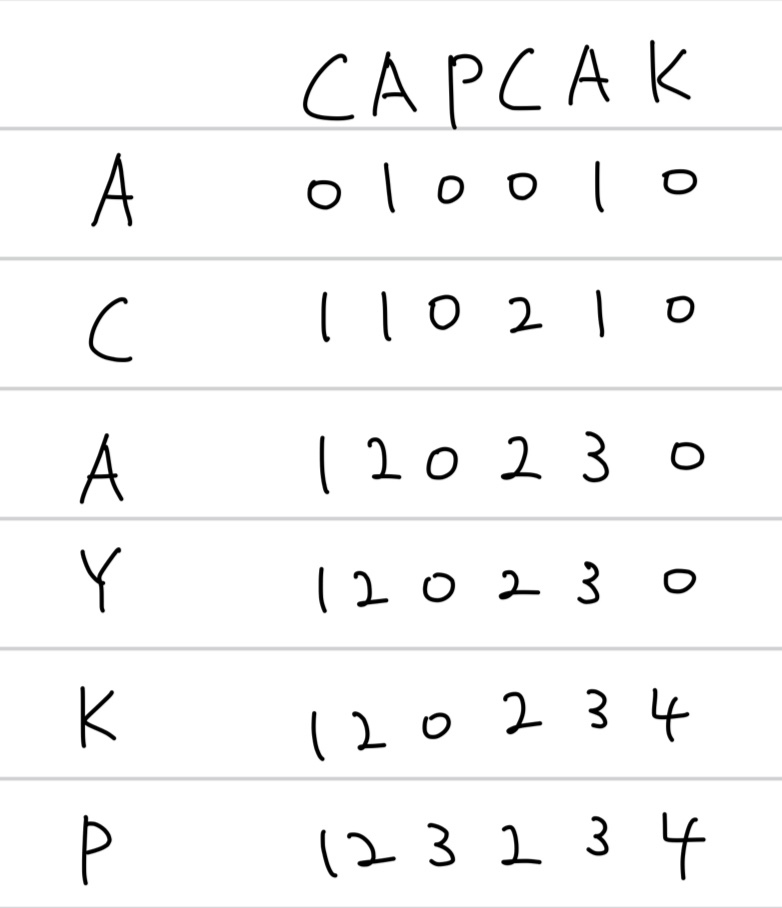 CAPCAK
A 010010
C 110210
A 120230
Y 120230
K 120234
P 123234